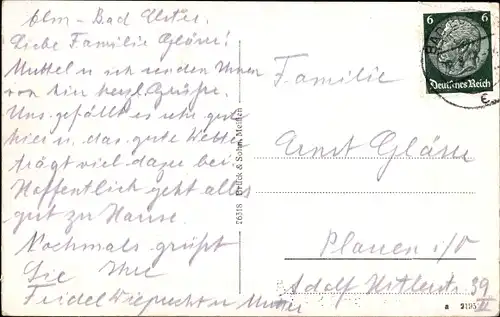 Bad Elster.
Liebe Familie Gläser!
Muttel u. ich senden Ihnen
von hier herzl. Grüße.
Uns gefällt es sehr gut
hier u. das gute Wetter
trägt viel dazu bei
Hoffentlich geht alles
gut zu Hause.
Nochmals grüßt
Sie Ihre
Friedel u. Mutter
26318 Brück & Sohn, Meißen
6 6
Deutsches Reich
Familie
Ernst Gläser
Plauen i/V
Adolf Hitlerstr. 39
III
a